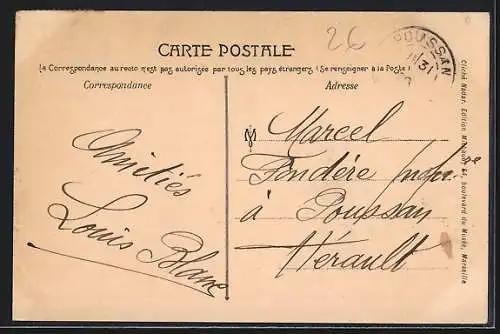 26
POUSSAN
31
CARTE POSTALE
La Correspondance au recto n'est pas autorisée par tous les pays étrangers (Se renseigner à la Poste)
Correspondance
Adresse
Amitiés
Louis Blanc
M
Marcel
Fondère
à Poussan
Hérault
Cliché Nader. Edition boulevard du Musée, Marseille